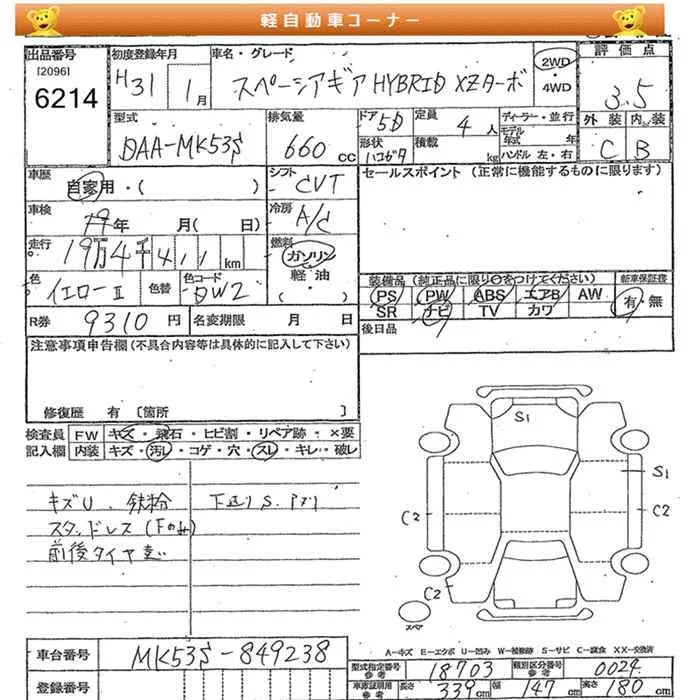 軽自動車コーナー
出品番号 初度登録年月 車名・グレード 評価点
[2096] 6214 H31年 1月 スペーシアギア HYBRID XZターボ 2WD・4WD 3.5
型式 排気量 ドア 5D 定員 4人 ディーラー・並行 外装 内装
DAA-MK53S 660cc 形状 ハコガタ 積載 kg モデル年式 年 ハンドル 左・右 C B
車歴 自家用・( ) シフト CVT セールスポイント (正常に機能するものに限ります)
車検 年 月( 日) 冷房 A/C
走行 19万4千411km 燃料 ガソリン・軽油・( )
色 イエローⅡ 色替 色コード DW2 装備品(純正品に限り○をつけてください) 新車保証書
PS PW ABS エアB AW 有・無
R券 9310円 名変期限 月 日 SR ナビ TV カワ
後日品
注意事項申告欄(不具合内容等は具体的に記入して下さい)
修復歴 有 [箇所 ]
検査員 FW キズ・飛石・ヒビ割・リペア跡・×要
記入欄 内装 キズ・汚レ・コゲ・穴・スレ・キレ・破レ
S1
S1
C2 C2
C2
キズU、鉄粉 下廻りS.サビ
スタッドレス(Fのみ)
前後タイヤ違い
スペア
A-キズ E-エクボ U-凹み W-補修跡 S-サビ C-腐食 XX-交換済
車台番号 MK53S-849238 型式指定番号 参考 18703 類別区分番号 参考 0024
登録番号 車庫証明用 参考 長さ 339cm 幅 147cm 高さ 180cm